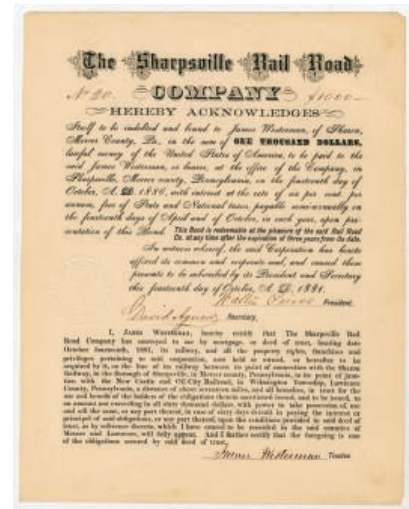 The Sharpsville Rail Road
No 20. COMPANY $1000
HEREBY ACKNOWLEDGES
Itself to be indebted and bound to James Westerman, of Sharon,
Mercer County, Pa., in the sum of ONE THOUSAND DOLLARS,
lawful money of the United States of America, to be paid to the
said James Westerman, or bearer, at the office of the Company, in
Sharpsville, Mercer county, Pennsylvania, on the fourteenth day of
October, A. D. with interest at the rate of six per cent per
annum, free of State and National taxes, payable semi-annually on
the fourteenth days of April and of October, in each year, upon pre-
sentation of this Bond. This Bond is redeemable at the pleasure of the said Rail Road
Co. at any time after the expiration of three years from its date.
In witness whereof, the said Corporation has hereto
affixed its common and corporate seal, and caused these
presents to be subscribed by its President and Secretary
this fourteenth day of October, A. D. 1881.
Walter Pierce President.
David Agnew Secretary.
I, JAMES WESTERMAN, hereby certify that The Sharpsville Rail
Road Company has conveyed to me by mortgage, or deed of trust, bearing date
October fourteenth, 1881, its railway, and all the property rights, franchises and
privileges pertaining to said corporation, now held or owned, or hereafter to be
acquired by it, on the line of its railway between its point of connection with the Sharon
Railway, in the Borough of Sharpsville, in Mercer county, Pennsylvania, to its point of junc-
tion with the New Castle and Oil City Railroad, in Wilmington Township, Lawrence
County, Pennsylvania, a distance of about seventeen miles, and all branches, in trust for the
use and benefit of the holders of the obligations therein mentioned issued, and to be issued, to
an amount not exceeding in all sixty thousand dollars, with power to take possession of, use
and sell the same, or any part thereof, in case of sixty days default in paying the interest or
principal of said obligations, or any part thereof, upon the conditions provided in said deed of
trust, as by reference thereto, which I have caused to be recorded in the said counties of
Mercer and Lawrence, will fully appear. And I further certify that the foregoing is one
of the obligations secured by said deed of trust.
James Westerman Trustee